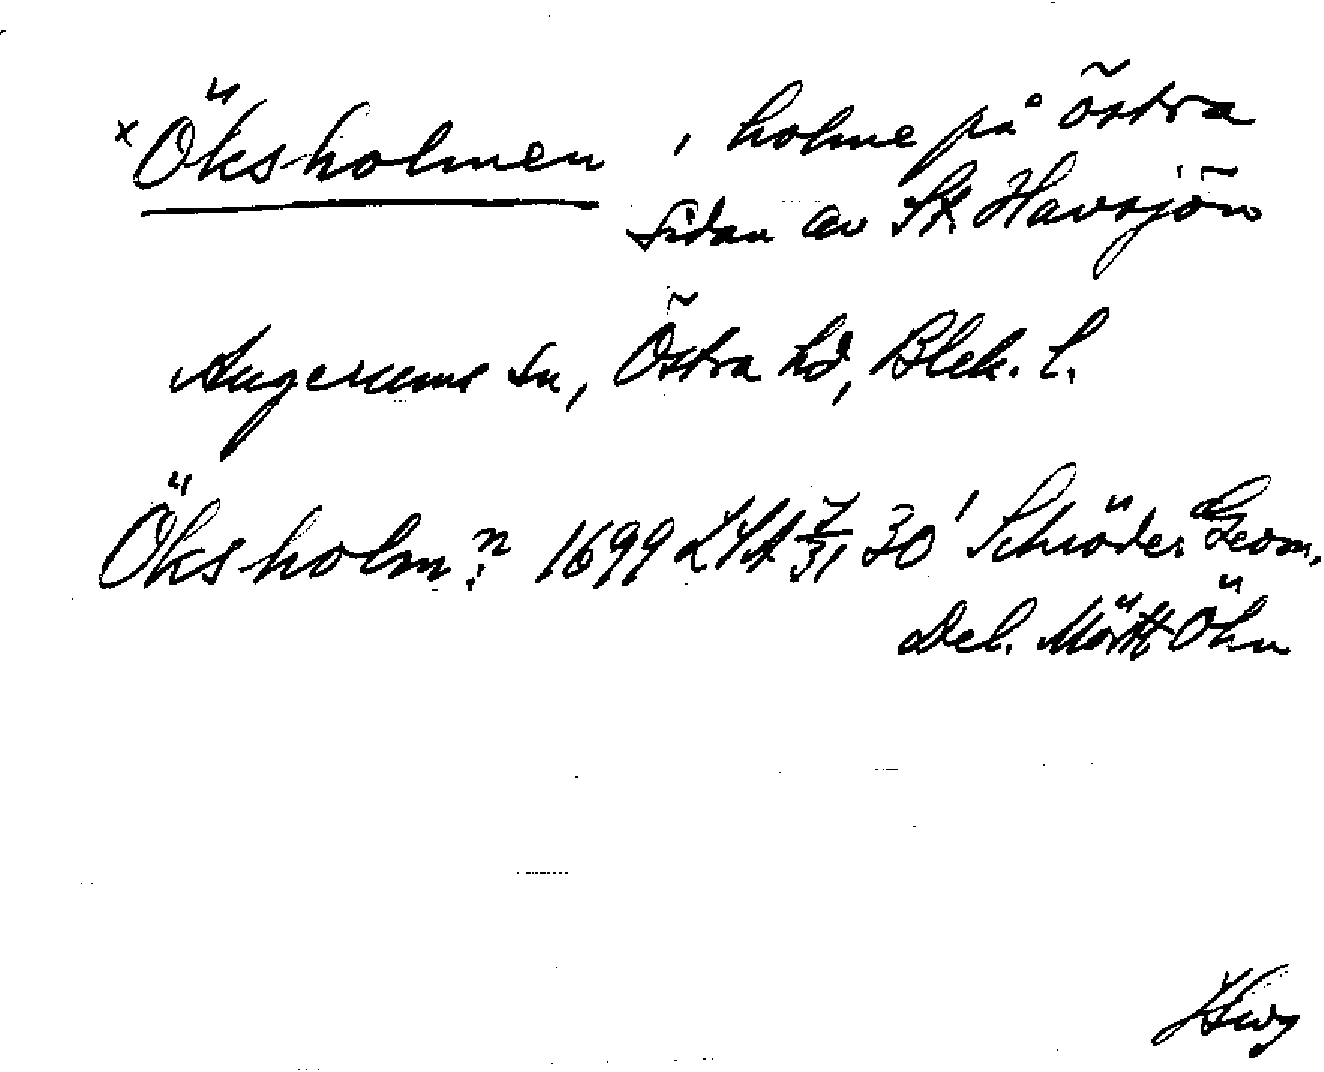 × Öksholmen, holme på östra
sidan av St. Havsjön
Augerums sn, Östra hd, Blek. l.
Öksholm? 1699 LSA 7/31 30' Schröder Geom.
Del. Mört Öhn